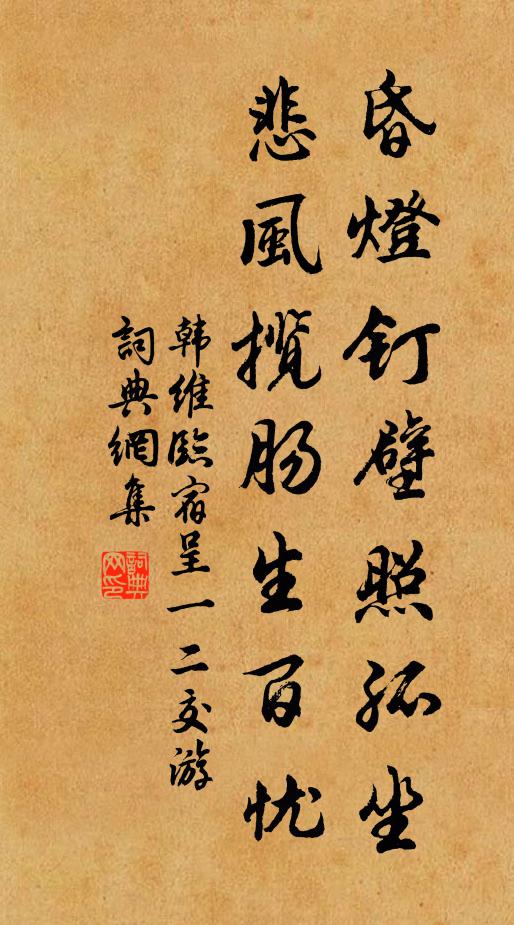 昏燈钉壁照孤坐
悲風揽肠生百忧
韩维臨宿呈一二交游
詞典網集
詞典网印